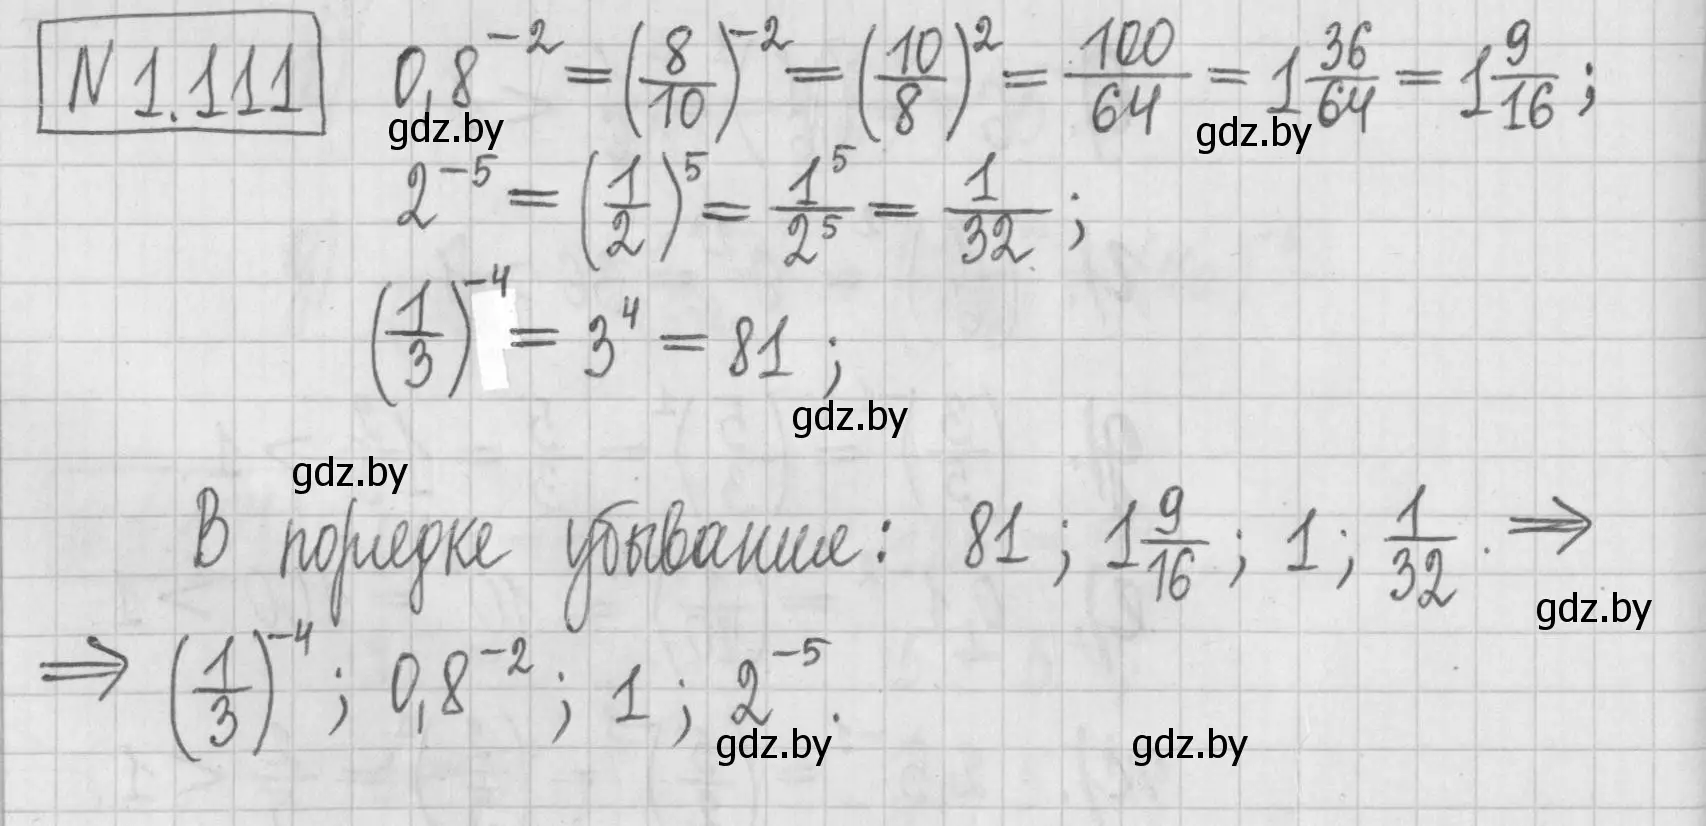 N 1.111 0,8^{-2} = (8/10)^{-2} = (10/8)^2 = 100/64 = 1 36/64 = 1 9/16 ;
gdz.by gdz.by
2^{-5} = (1/2)^5 = 1^5/2^5 = 1/32 ;
(1/3)^{-4} = 3^4 = 81 ;
gdz.by
gdz.by
В порядке убывания: 81 ; 1 9/16 ; 1 ; 1/32 . ⇒
gdz.by
⇒ (1/3)^{-4} ; 0,8^{-2} ; 1 ; 2^{-5} .
gdz.by gdz.by